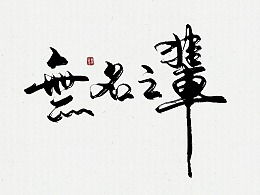 無名之輩